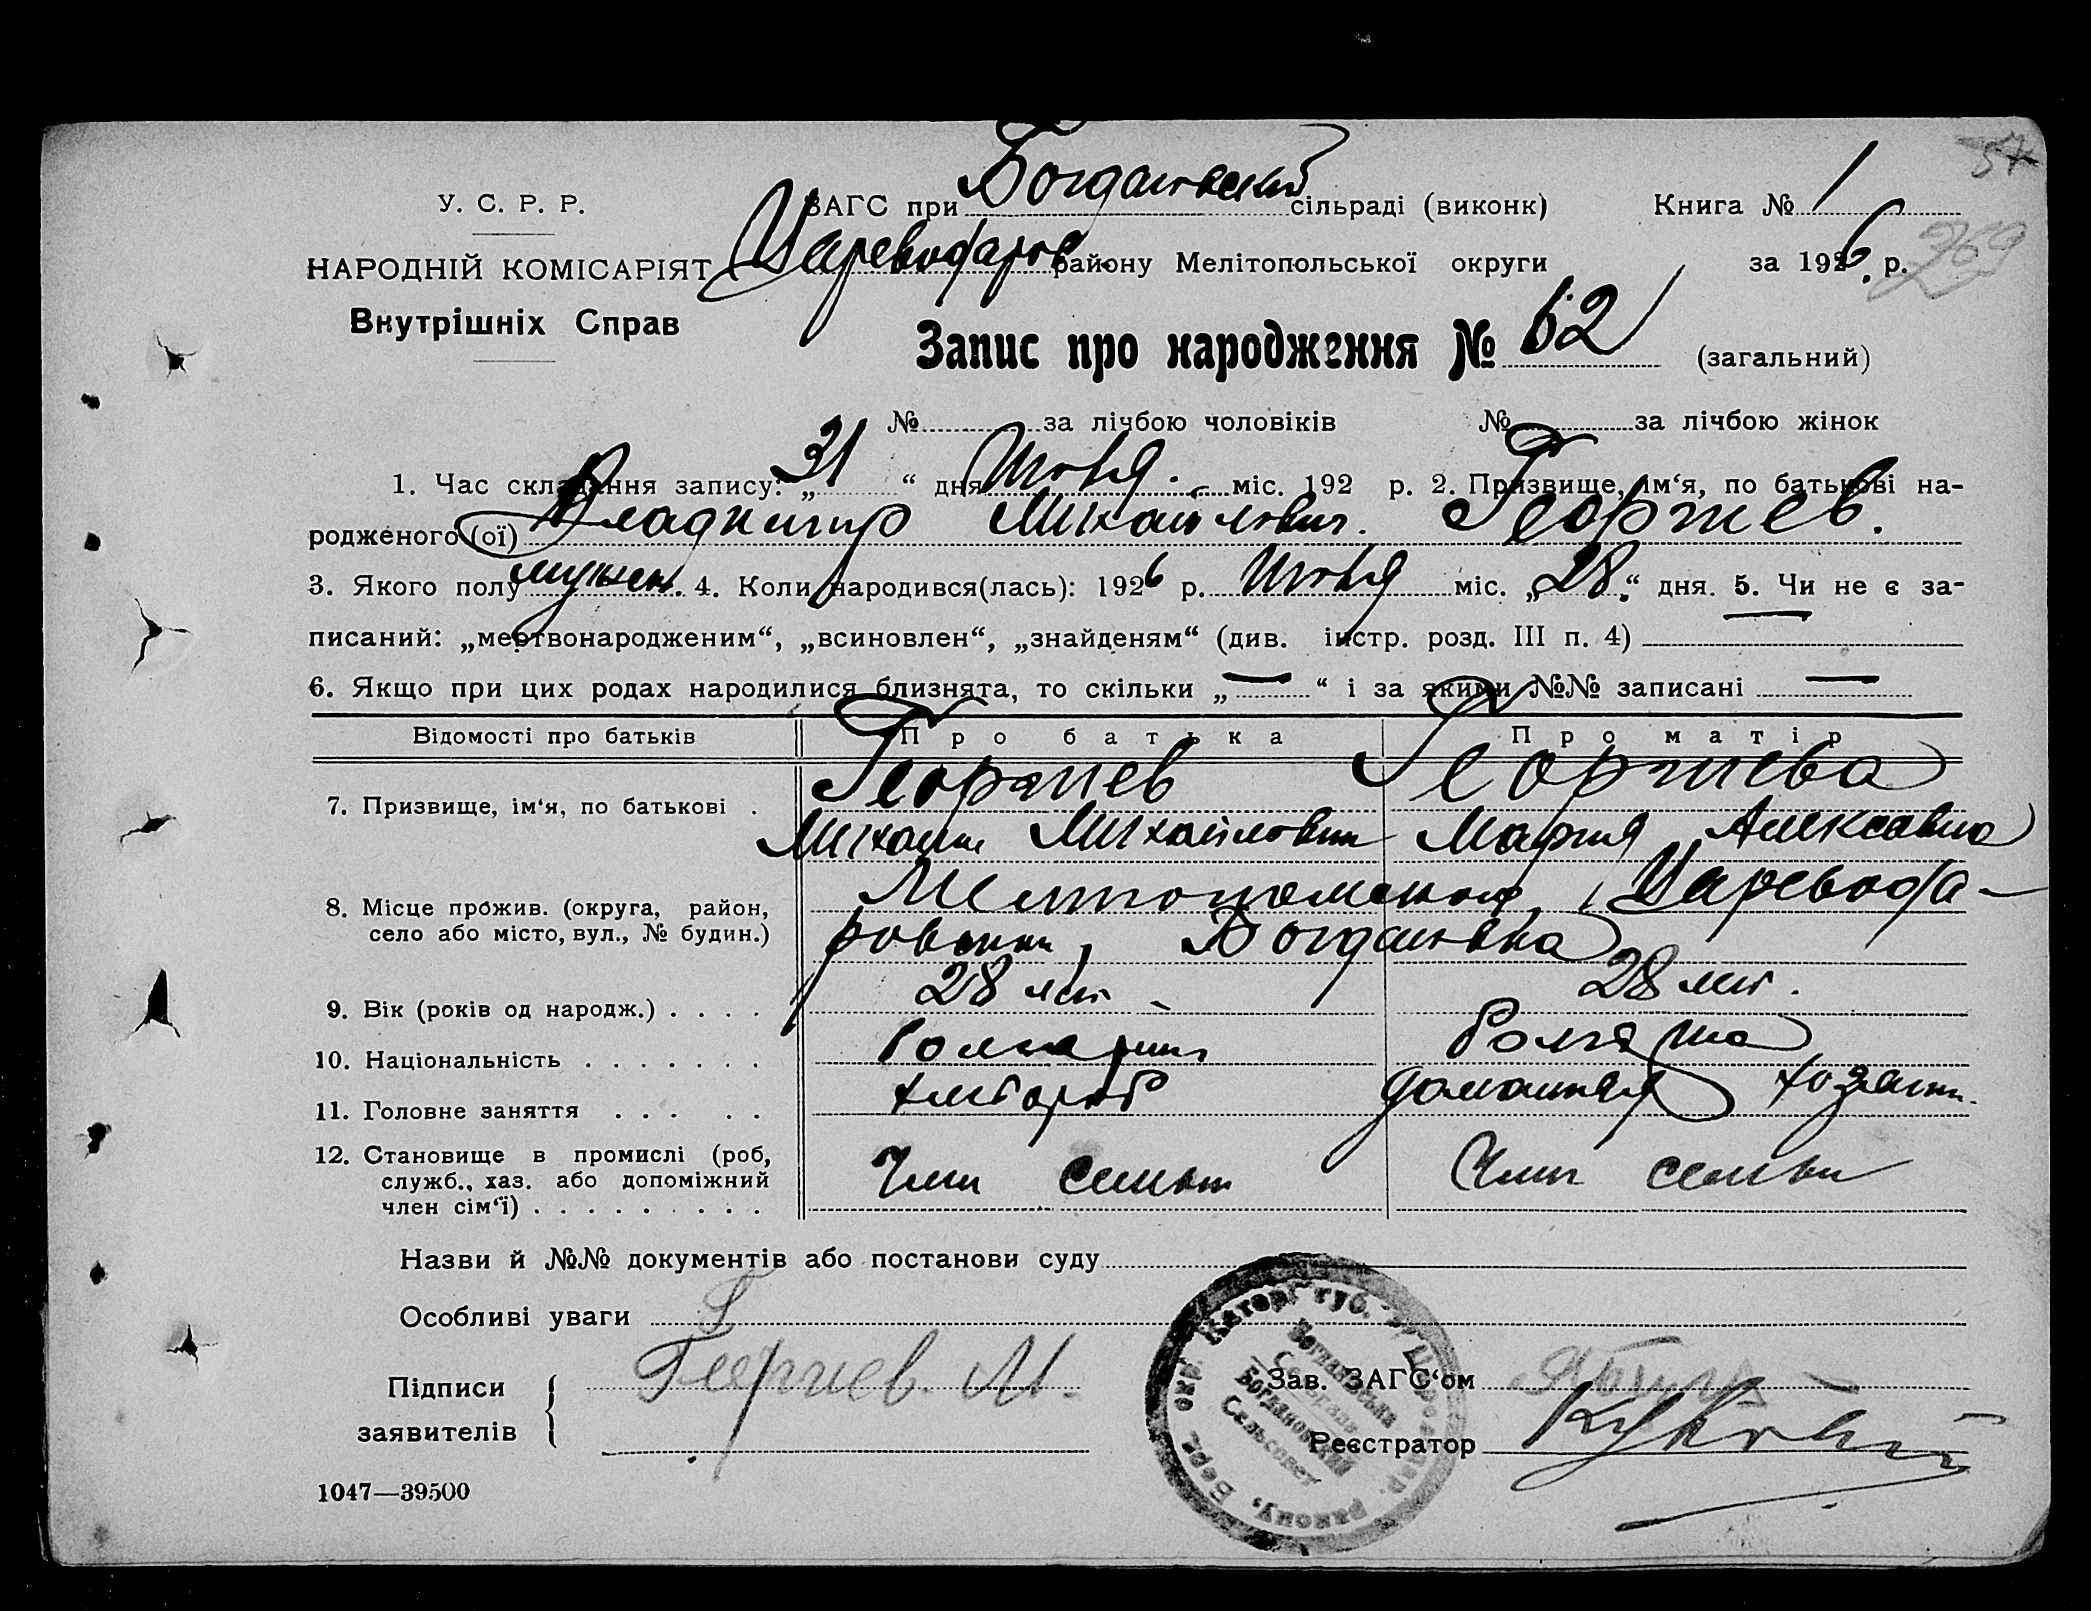 У. С. Р. Р.
НАРОДНІЙ КОМІСАРІЯТ
Внутрішніх Справ
ЗАГС при Богдановский сільраді (виконк) Книга № 1
Цареводаров. району Мелітопольської округи за 1926 р.
269
Запис про народження № 62 (загальний)
№ за лічбою чоловіків № за лічбою жінок
1. Час складання запису: „ 31 “ дня Июля міс. 192 р. 2. Призвище, ім‘я, по батькові на-
родженого (ої) Владимир Михайлович Георгиев.
3. Якого полу мужск. 4. Коли народився(лась): 1926 р. Июля міс. „ 28 “ дня. 5. Чи не є за-
писаний: „мертвонародженим“, „всиновлен“, „знайденям“ (див. інстр. розд. III п. 4) —
6. Якщо при цих родах народилися близнята, то скільки „ — “ і за якими №№ записані —
Відомості про батьків Про батька Про матір
7. Призвище, ім‘я, по батькові . Георгиев Георгиева
Михаил Михайлович Мария Алексевна
8. Місце прожив. (округа, район, село або місто, вул., № будин.) Мелитопольский, Царевода-
ровский, Богдановка
9. Вік (років од народж.) . . . . 28 лет 28 лет.
10. Національність . . . . . . . Болгарин Болгарка
11. Головне заняття . . . . . хлебороб домашняя хозяйк.
12. Становище в промислі (роб, служб., хаз. або допоміжний член сім‘ї) . . . . . . . . . Член семьи Член семьи
Назви й №№ документів або постанови суду
Особливі уваги
Підписи заявителів Георгиев. М.
Зав. ЗАГС‘ом
Реєстратор
Богданівська
Сільрада
Богдановский
Сельсовет
1047—39500